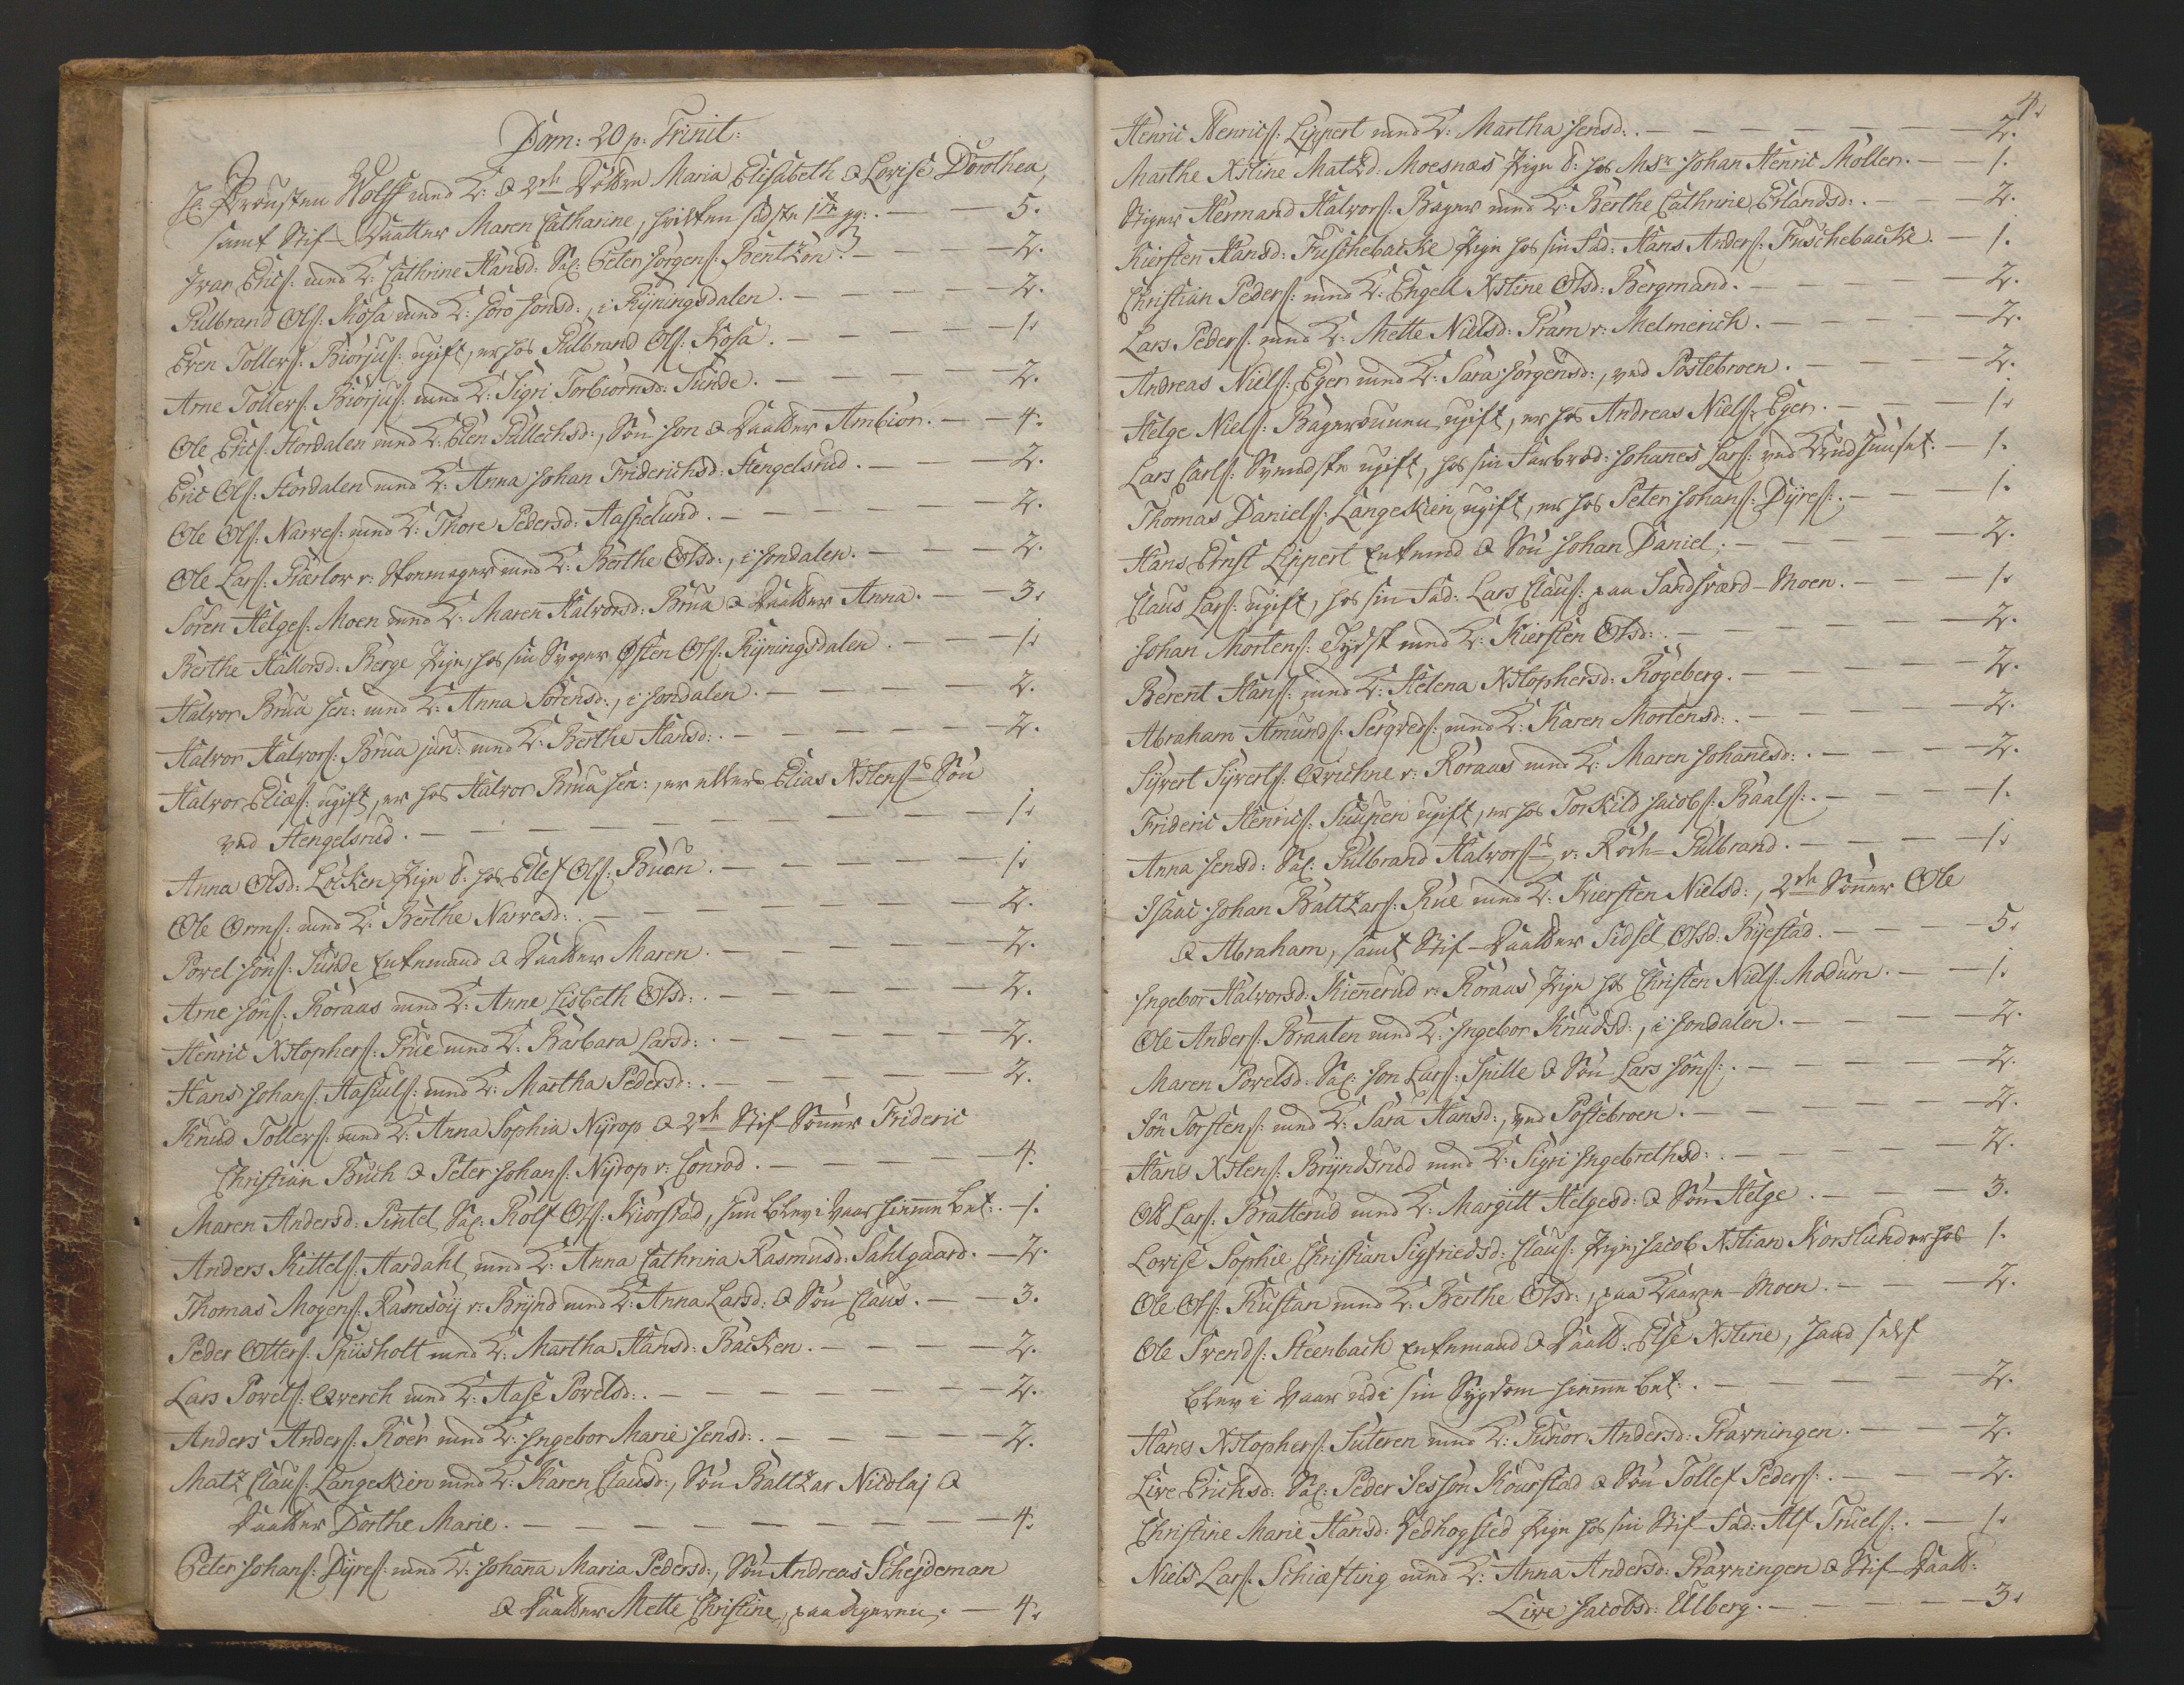 Dom: 20 p: Trinit:
H: Provsten Wolff med K: & 2de Døttre Maria Elisabeth & Lovise Dorothea,
samt Stif-Daatter Maren Catharine, hvilken sidste 1te gg: . — — 5.
Ivar Erics: med K: Cathrine Hansd: Sal: Peter Jørgens: Bentzon. — — — 2.
Gulbrand Ols: Kosa med K: Joro Jonsd:, i Ryningsdalen. — — — — 2.
Even Tollefs: Biørjus: ugift, er hos Gulbrand Ols: Kosa. — — — — 1.
Arne Tollefs: Biørjus: med K: Sigri Torbiørnsd: Sunde. — — — — 2.
Ole Erics: Hordalen med K: Elen Gullechsd:, Søn Jon & Daatter Ambior. — — 4.
Eric Ols: Hordalen med K: Anna Johan Friderichsd: Hengelsrud. — — — 2.
Ole Ols: Narves: med K: Thore Pedersd: Haslelund. — — — — 2.
Ole Lars: Giærlov v: Skomager med K: Berthe Olsd:, i Jondalen. — — — 2.
Søren Helges: Moen med K: Maren Halvorsd: Brua & Daatter Anna. — — 3.
Berthe Hallorsd: Berge Pige, hos sin Svoger Østen Ols: Ryningsdalen. — — — 1.
Halvor Brua sen: med K: Anna Sørensd:, i Jondalen. — — — — 2.
Halvor Halvors: Brua jun: med K: Berthe Hansd: . — — — — 2.
Halvor Elias: ugift, er hos Halvor Brua sen:, er ellers Elias Xstens: Søn
ved Hengelsrud. — — — — — — — — — 1.
Anna Olsd: Løcken Pige t: hos Ellef Ols: Buan. — — — — 1.
Ole Orms: med K: Berthe Narvesd: . — — — — — 2.
Povel Jøns: Sunde Enkemand & Daatter Maren. — — — — 2.
Arne Jøns: Røraas med K: Anne Lisbeth Olsd: . — — — — 2.
Henric Xstophers: True med K: Barbara Larsd: . — — — — 2.
Hans Johans: Hasiuls: med K: Martha Pedersd: . — — — — 2.
Knud Tollefs: med K: Anna Sophia Nyrop & 2de Stif-Sønner Frideric
Christian Buch & Peter Johans: Nyrop v: Conrad. — — — — — 4.
Maren Andersd: Pintel Sal: Rolf Ols: Kiørstad, hun blev i Vaar hiemme bet: . — 1.
Anders Kittels: Aardahl med K: Anna Cathrina Rasmusd: Sahlgaard. — 2.
Thomas Mogens: Ramsøy v: Brynd med K: Anna Larsd: & Søn Claus. — — 3.
Peder Otters: Spiisholt med K: Martha Hansd: Backen. — — — — 2.
Lars Povels: Qverch med K: Aase Povelsd: . — — — — — 2.
Anders Anders: Roer med K: Ingebor Marie Jensd: . — — — — 2.
Matz Claus: Langeskien med K: Karen Clausd:, Søn Baltzar Nicolaj &
Daatter Dorthe Marie. — — — — — — — — 4.
Peter Johans: Dyres: med K: Johanna Maria Pedersd:, Søn Andreas Schejdeman
& Daatter Mette Christine, paa Ægeren. — 4.
4.
Henric Henrics: Lippert med K: Martha Jensd: . — — — — — — 2.
Marthe Xstine Matzd: Moesnæs Pige t: hos Msr Johan Henric Møller. — — 1.
Stiger Hermand Halvors: Bager med K: Berthe Cathrine Erlandsd: . — — 2.
Kiersten Hansd: Fuschebacke Pige hos sin Fad: Hans Anders: Fuschebacke. — 1.
Christian Peders: med K: Engell Xstine Olsd: Bergmand. — — — — 2.
Lars Peders: med K: Mette Nielsd: Pram v: Melmerich. — — — — 2.
Andreas Niels: Eger med K: Sara Jørgensd:, ved Postebroen. — — — — 2.
Helge Niels: Bagersvenn ugift, er hos Andreas Niels: Eger. — — — 1.
Lars Carls: Svendske ugift, hos sin Farbrod: Johanes Lars: ved Krudhuuset. — 1.
Thomas Daniels: Langeskien ugift, er hos Peter Johans: Dyres: . — — — 1.
Hans Ernst Lippert Enkemd & Søn Johan Daniel. — — — — — 2.
Claus Lars: ugift, hos sin Fad: Lars Claus: paa Sandsværd-Moen. — — — 1.
Johan Mortens: Tydsk med K: Kiersten Olsd: . — — — — — 2.
Berent Hans: med K: Helena Xstophersd: Rogeberg. — — — — — 2.
Abraham Amunds: Sergveds: med K: Karen Mortensd: . — — — — 2.
Syvert Syverts: Qvichne v: Røraas med K: Maren Johanesd: . — — — — 2.
Frideric Henrics: Suupen ugift, er hos Torkild Jacobs: Baals: . — — — 1.
Anna Jensd: Sal: Gulbrand Halvors: v: Røch-Gulbrand. — — — — 1.
Isaac Johan Baltzars: Rue med K: Kiersten Nielsd:, 2de Sønner Ole
& Abraham, samt Stif-Daatter Sidsel Olsd: Byestad. — — — — 5.
Ingebor Halvorsd: Kiennerud v: Røraas Pige hos Christen Niels: Modum. — — 1.
Ole Anders: Braaten med K: Ingebor Knudsd:, i Jondalen. — — — — 2.
Maren Povelsd: Sal: Jon Lars: Spille & Søn Lars Jøns: . — — — — 2.
Jøn Torstens: med K: Sara Hansd:, ved Postebroen. — — — — — 2.
Hans Xstens: Bryndsrud med K: Sigri Ingebrethsd: . — — — — 2.
Ole Lars: Bratterud med K: Margitt Helgesd: & Søn Helge. — — — 3.
Lovise Sophie Christian Sigfriedsd: Claus: Pige, Jacob Xstian Korslund er hos 1.
Ole Ols: Rustan med K: Berthe Olsd:, paa Kaarpe-Moen. — — — — 2.
Ole Svends: Steenbach Enkemand & Daatt: Else Xstine, hand self
blev i Vaar udi sin Sygdom hiemme bet: . — — — — — — 2.
Hans Xstophers: Suteren med K: Gunor Andersd: Gravningen. — — — 2.
Live Erichsd: Sal: Peder Jesson Kourstad & Søn Tollef Peders: . — — — 2.
Christine Marie Hansd: Vedhogsted Pige hos sin Stif-Fad: Alf Truels: . — 1.
Niels Lars: Schiæfting med K: Anna Andersd: Gravningen & Stif-Daatt:
Live Jacobsd: Ulberg. — — — — — 3.